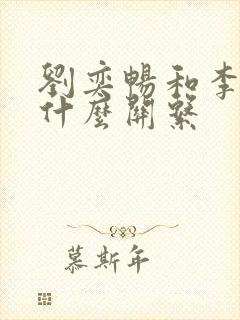 劉奕暢和李
什麼關繫
慕斯年